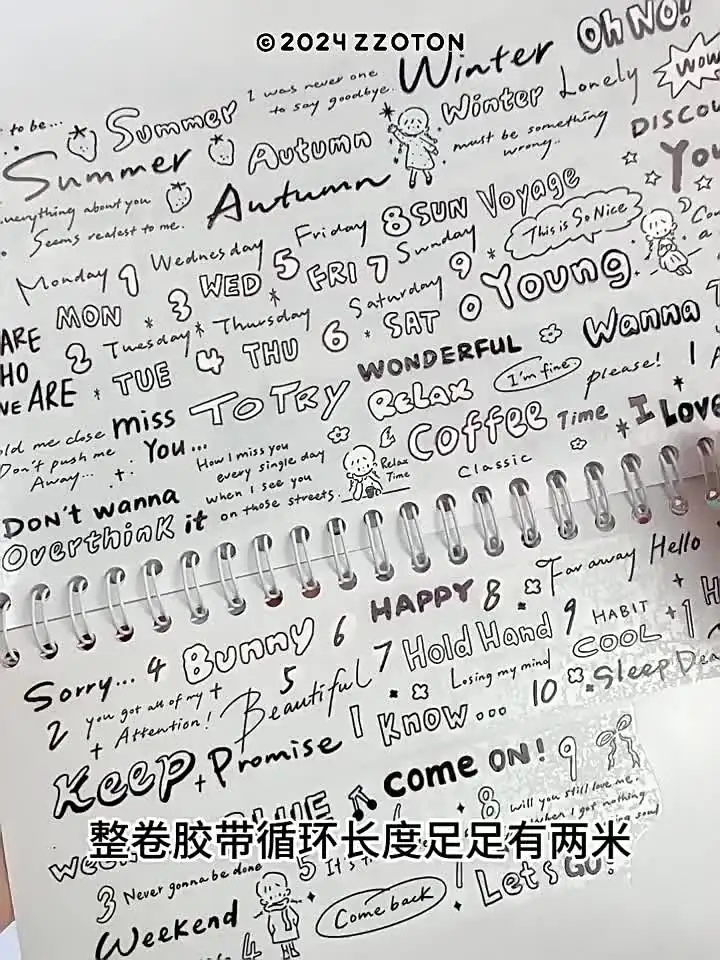 ©2024 ZZOTON
to be... Summer I was never one to say goodbye. Winter Oh NO!
Summer Autumn Winter Lonely Wow
everything about you Autumn must be something wrong.. DISCOU
Seems realest to me. Friday 8 SUN Voyage You
Monday 1 Wednesday 5 FRI 7 Sunday This is So Nice
MON * 3 WED * Saturday 9 *
ARE 2 Tuesday * Thursday 6 * SAT 0 Young
HO
WE ARE * TUE 4 THU WONDERFUL Wanna
hold me close miss To TRY RELAX I'm fine please! I
Don't push me Away... You... How I miss you every single day when I see you on those streets. Relax Time Coffee Time * I Love
Classic
DON't wanna
Overthink it
Sorry... 4 Bunny 6 HAPPY 8 Far away Hello
2 you got all of my + Attention! 5 Beautiful 7 Hold Hand 9 HABIT + 1
Losing my mind COOL
Keep + Promise I Know... 10 Sleep
BLUE come ON! 9
整卷胶带循环长度足足有两米
8 will you still love me.
when I got nothing
3 Never gonna be done 5 It's
Weekend Come back Let's GO!
4